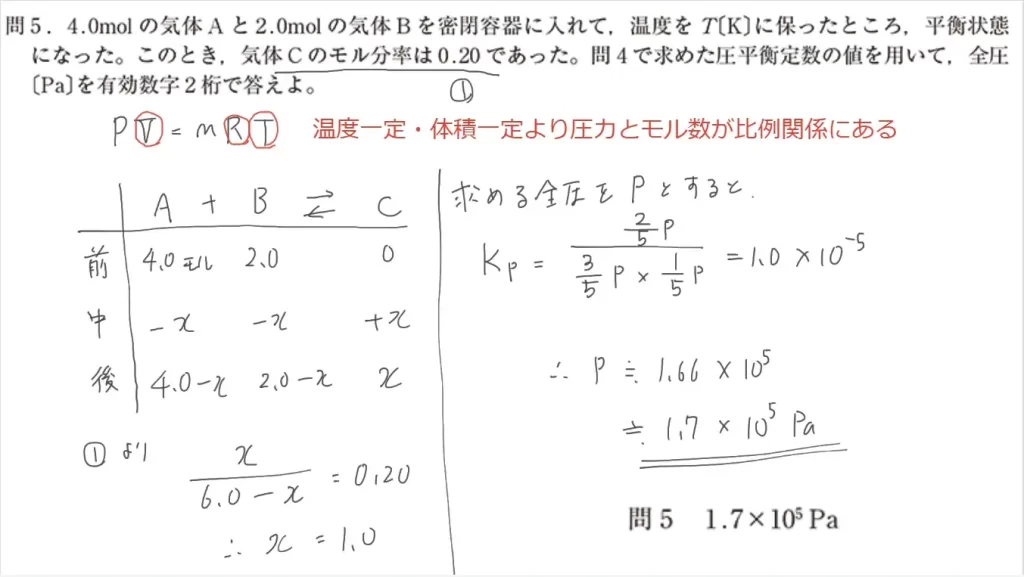 問5．4.0molの気体Aと2.0molの気体Bを密閉容器に入れて，温度をT〔K〕に保ったところ，平衡状態
になった。このとき，気体Cのモル分率は0.20であった。問4で求めた圧平衡定数の値を用いて，全圧
〔Pa〕を有効数字2桁で答えよ。
①
PV = nRT 温度一定・体積一定より圧力とモル数が比例関係にある
A + B ⇄ C
前 4.0モル 2.0 0
中 -x -x +x
後 4.0-x 2.0-x x
①より
x/(6.0-x) = 0.20
∴ x = 1.0
求める全圧をPとすると.
Kp = (2/5 P)/(3/5 P × 1/5 P) = 1.0 × 10^-5
∴ P ≒ 1.66 × 10^5
≒ 1.7 × 10^5 Pa
問5 1.7×10⁵Pa